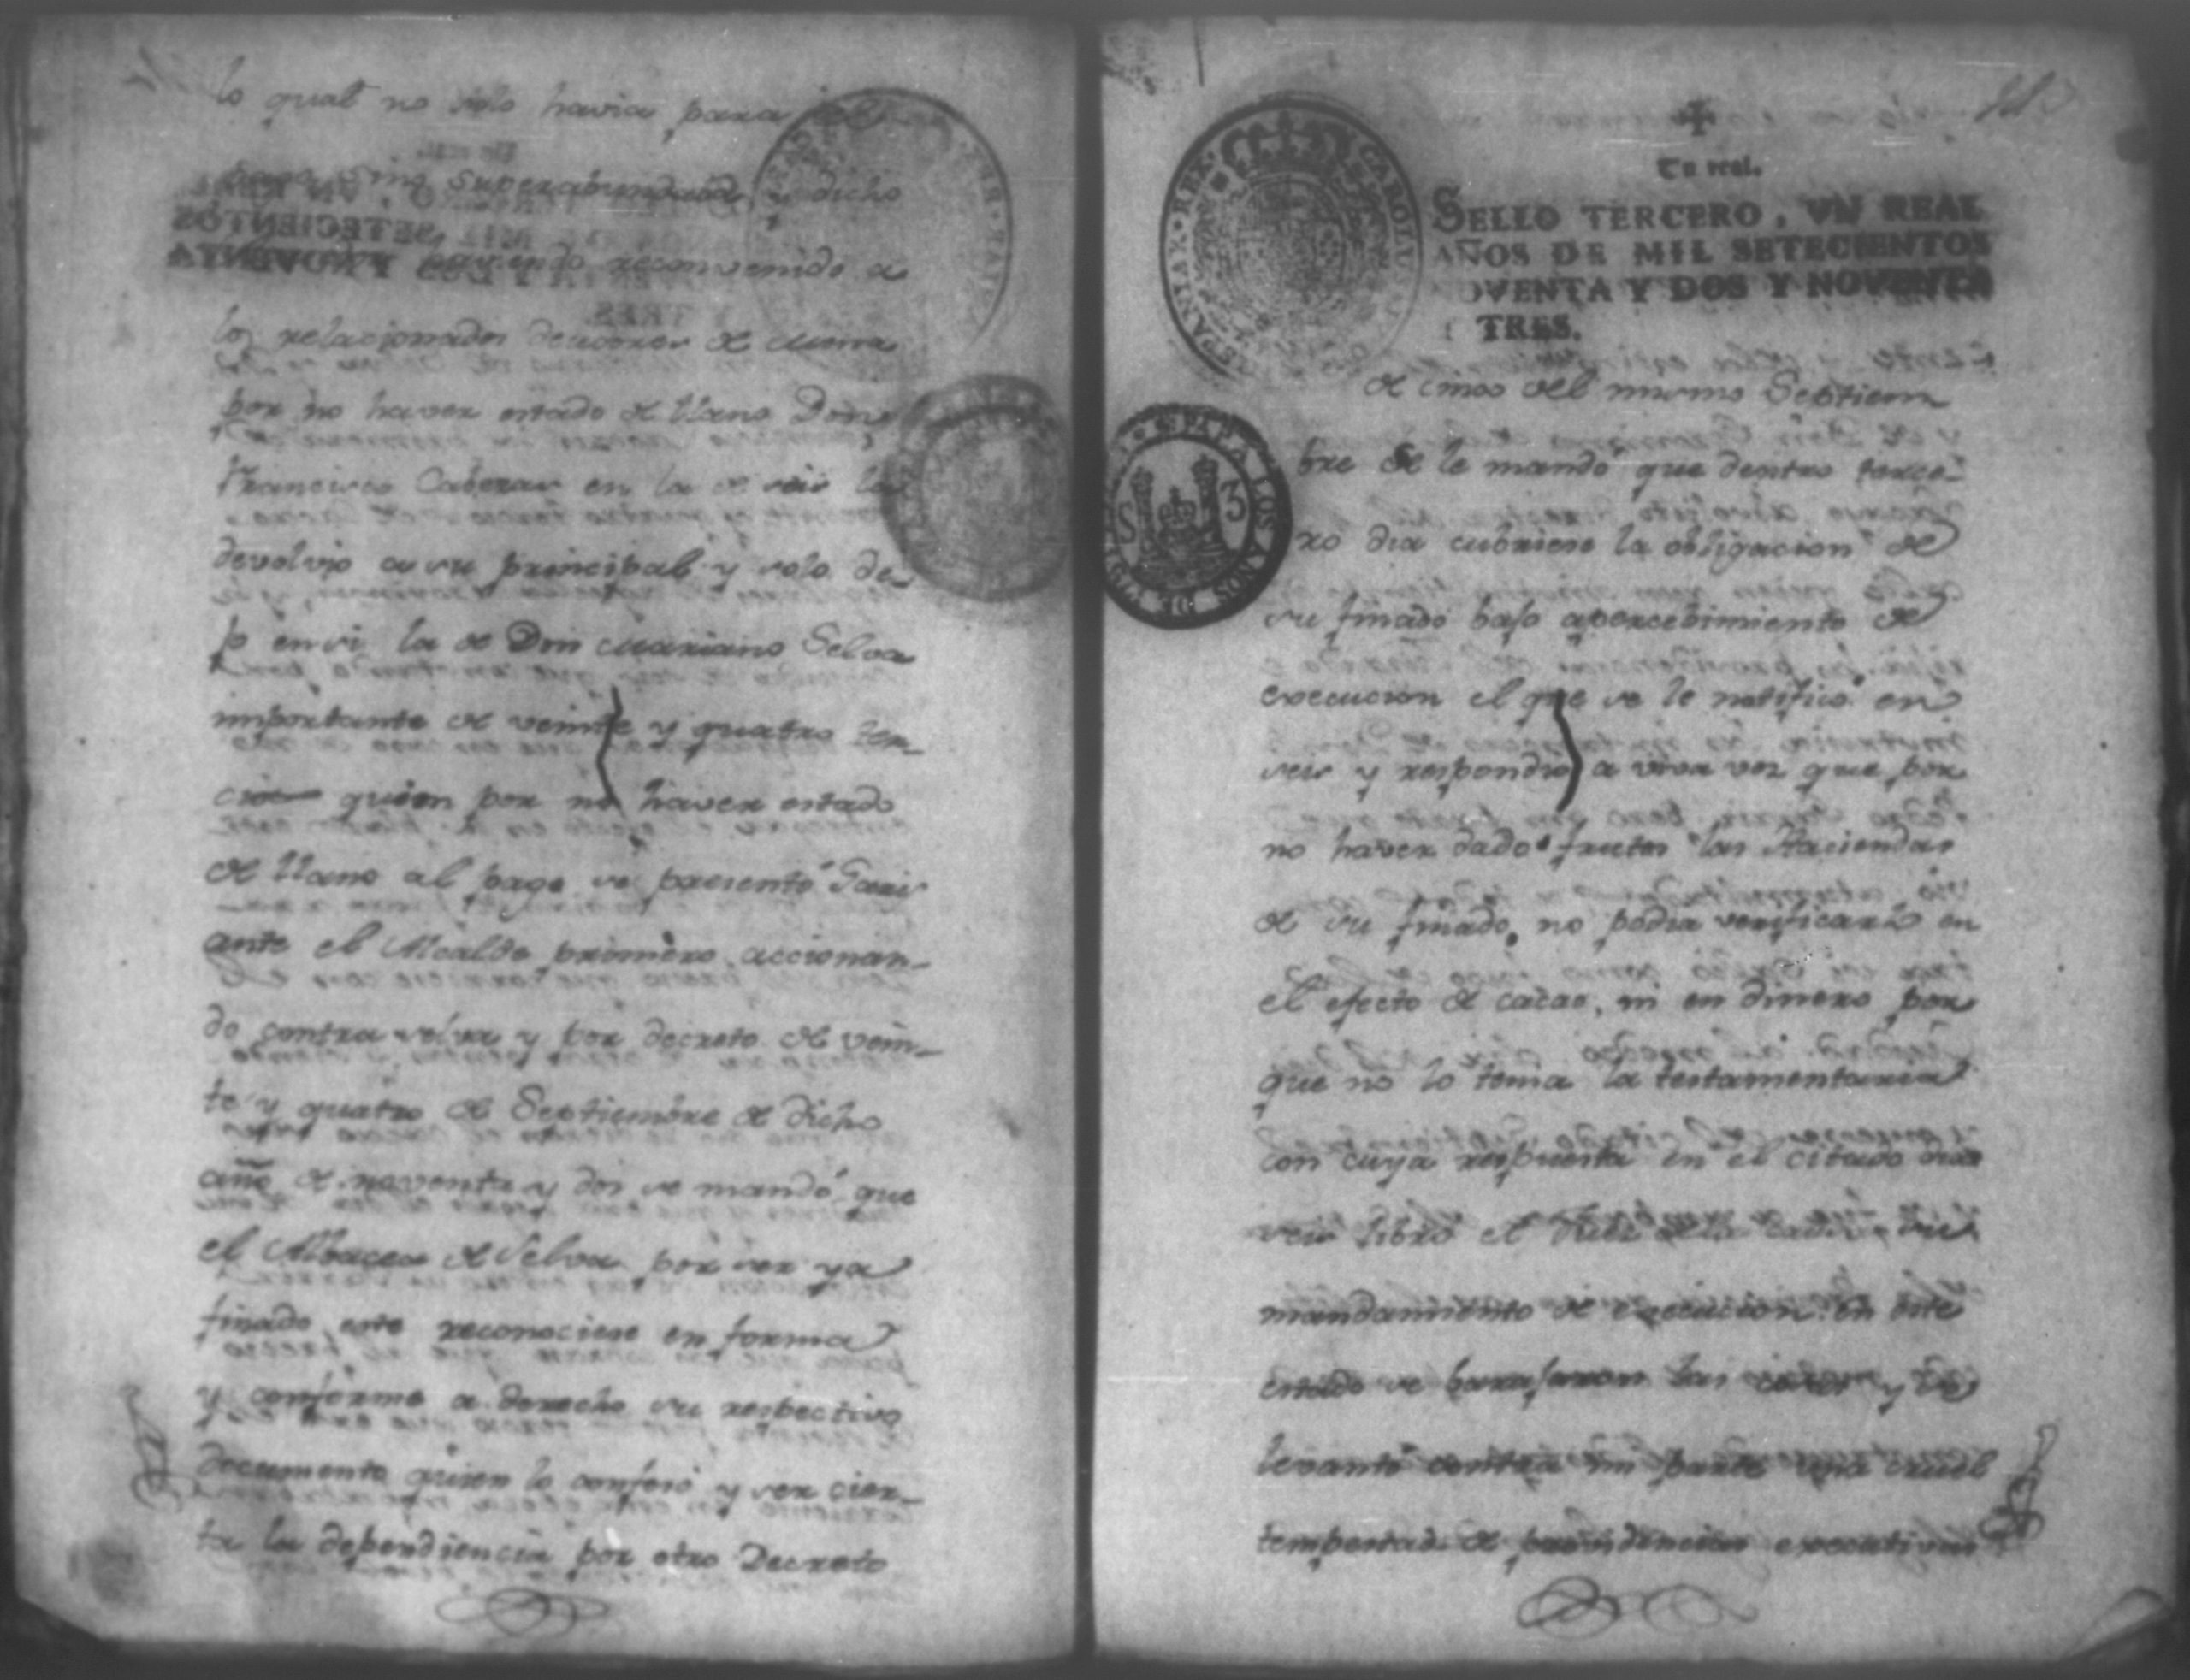 lo qual no solo havia para el
pago sino superabundado, y dicho
haviendo reconvenido a
los relacionados deudores de
por no haver estado de llano Don
Francisco en la de seis la
devolvio a su principal y solo de-
jo en si la de Don Mariano Selva
importante de veinte y quatro ter-
cios quien por no haver estado
de llano al pago se presentó
ante el Alcalde primero accionan-
do contra selva y por decreto de vein-
te y quatro de Septiembre de dicho
año de noventa y dos se mandó que
el Albacea de Selva por ser ya
finado este reconociese en forma
y conforme a derecho su respectivo
documento quien lo confesó y ser cier-
ta la dependiencia por otro Decreto
Un real.
SELLO TERCERO, VN REAL
AÑOS DE MIL SETECIENTOS
OVENTA Y DOS Y NOVENTA
TRES.
HISPANIAR·REX· CAROLUS
PARA LOS AÑOS DE
S 3
de cinco del mismo Septiem
bre se le mandó que dentro terce-
ro dia cubriese la obligacion de
su finado bajo apercebimiento de
execucion el que se le notificó en
seis y respondio a viva voz que por
no haver dado frutos las Haciendas
de su finado, no podia verificarlo en
el efecto de cacao, ni en dinero por
que no lo tenia la testamentaria
con cuya respuesta en el citado dia
seis libró el Juez de la causa su
mandamiento de execucion. En este
estado se barajaron las cosas y se
levantó contra mi parte una cruel
tempestad de providencias executivas